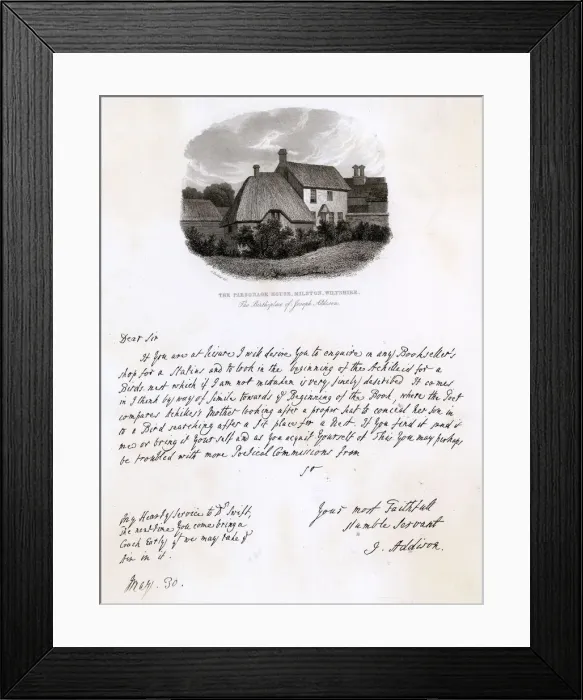 THE PARSONAGE HOUSE, MILSTON, WILTSHIRE.
The Birthplace of Joseph Addison.
Dear Sir
If You are at leisure I will desire You to enquire in any Bookseller's
shop for a Statius and to look in the beginning of the Achilleid for a
Birds-nest which if I am not mistaken is very finely described. It comes
in I think by way of Simile towards ye Beginning of the Book, where the Poet
compares Achilles's Mother looking after a proper seat to conceal her Son in
to a Bird searching after a fit place for a Nest. If You find it send it
me or bring it Yourself and as you acquit Yourself of This You may perhaps
be troubled with more Poetical Commissions from
Sr
Your most Faithfull
Humble Servant
J. Addison.
My Hearty Service to Dr Swift,
The next time You come bring a
Coach Early yt we may take ye
Air in it.
May. 30.